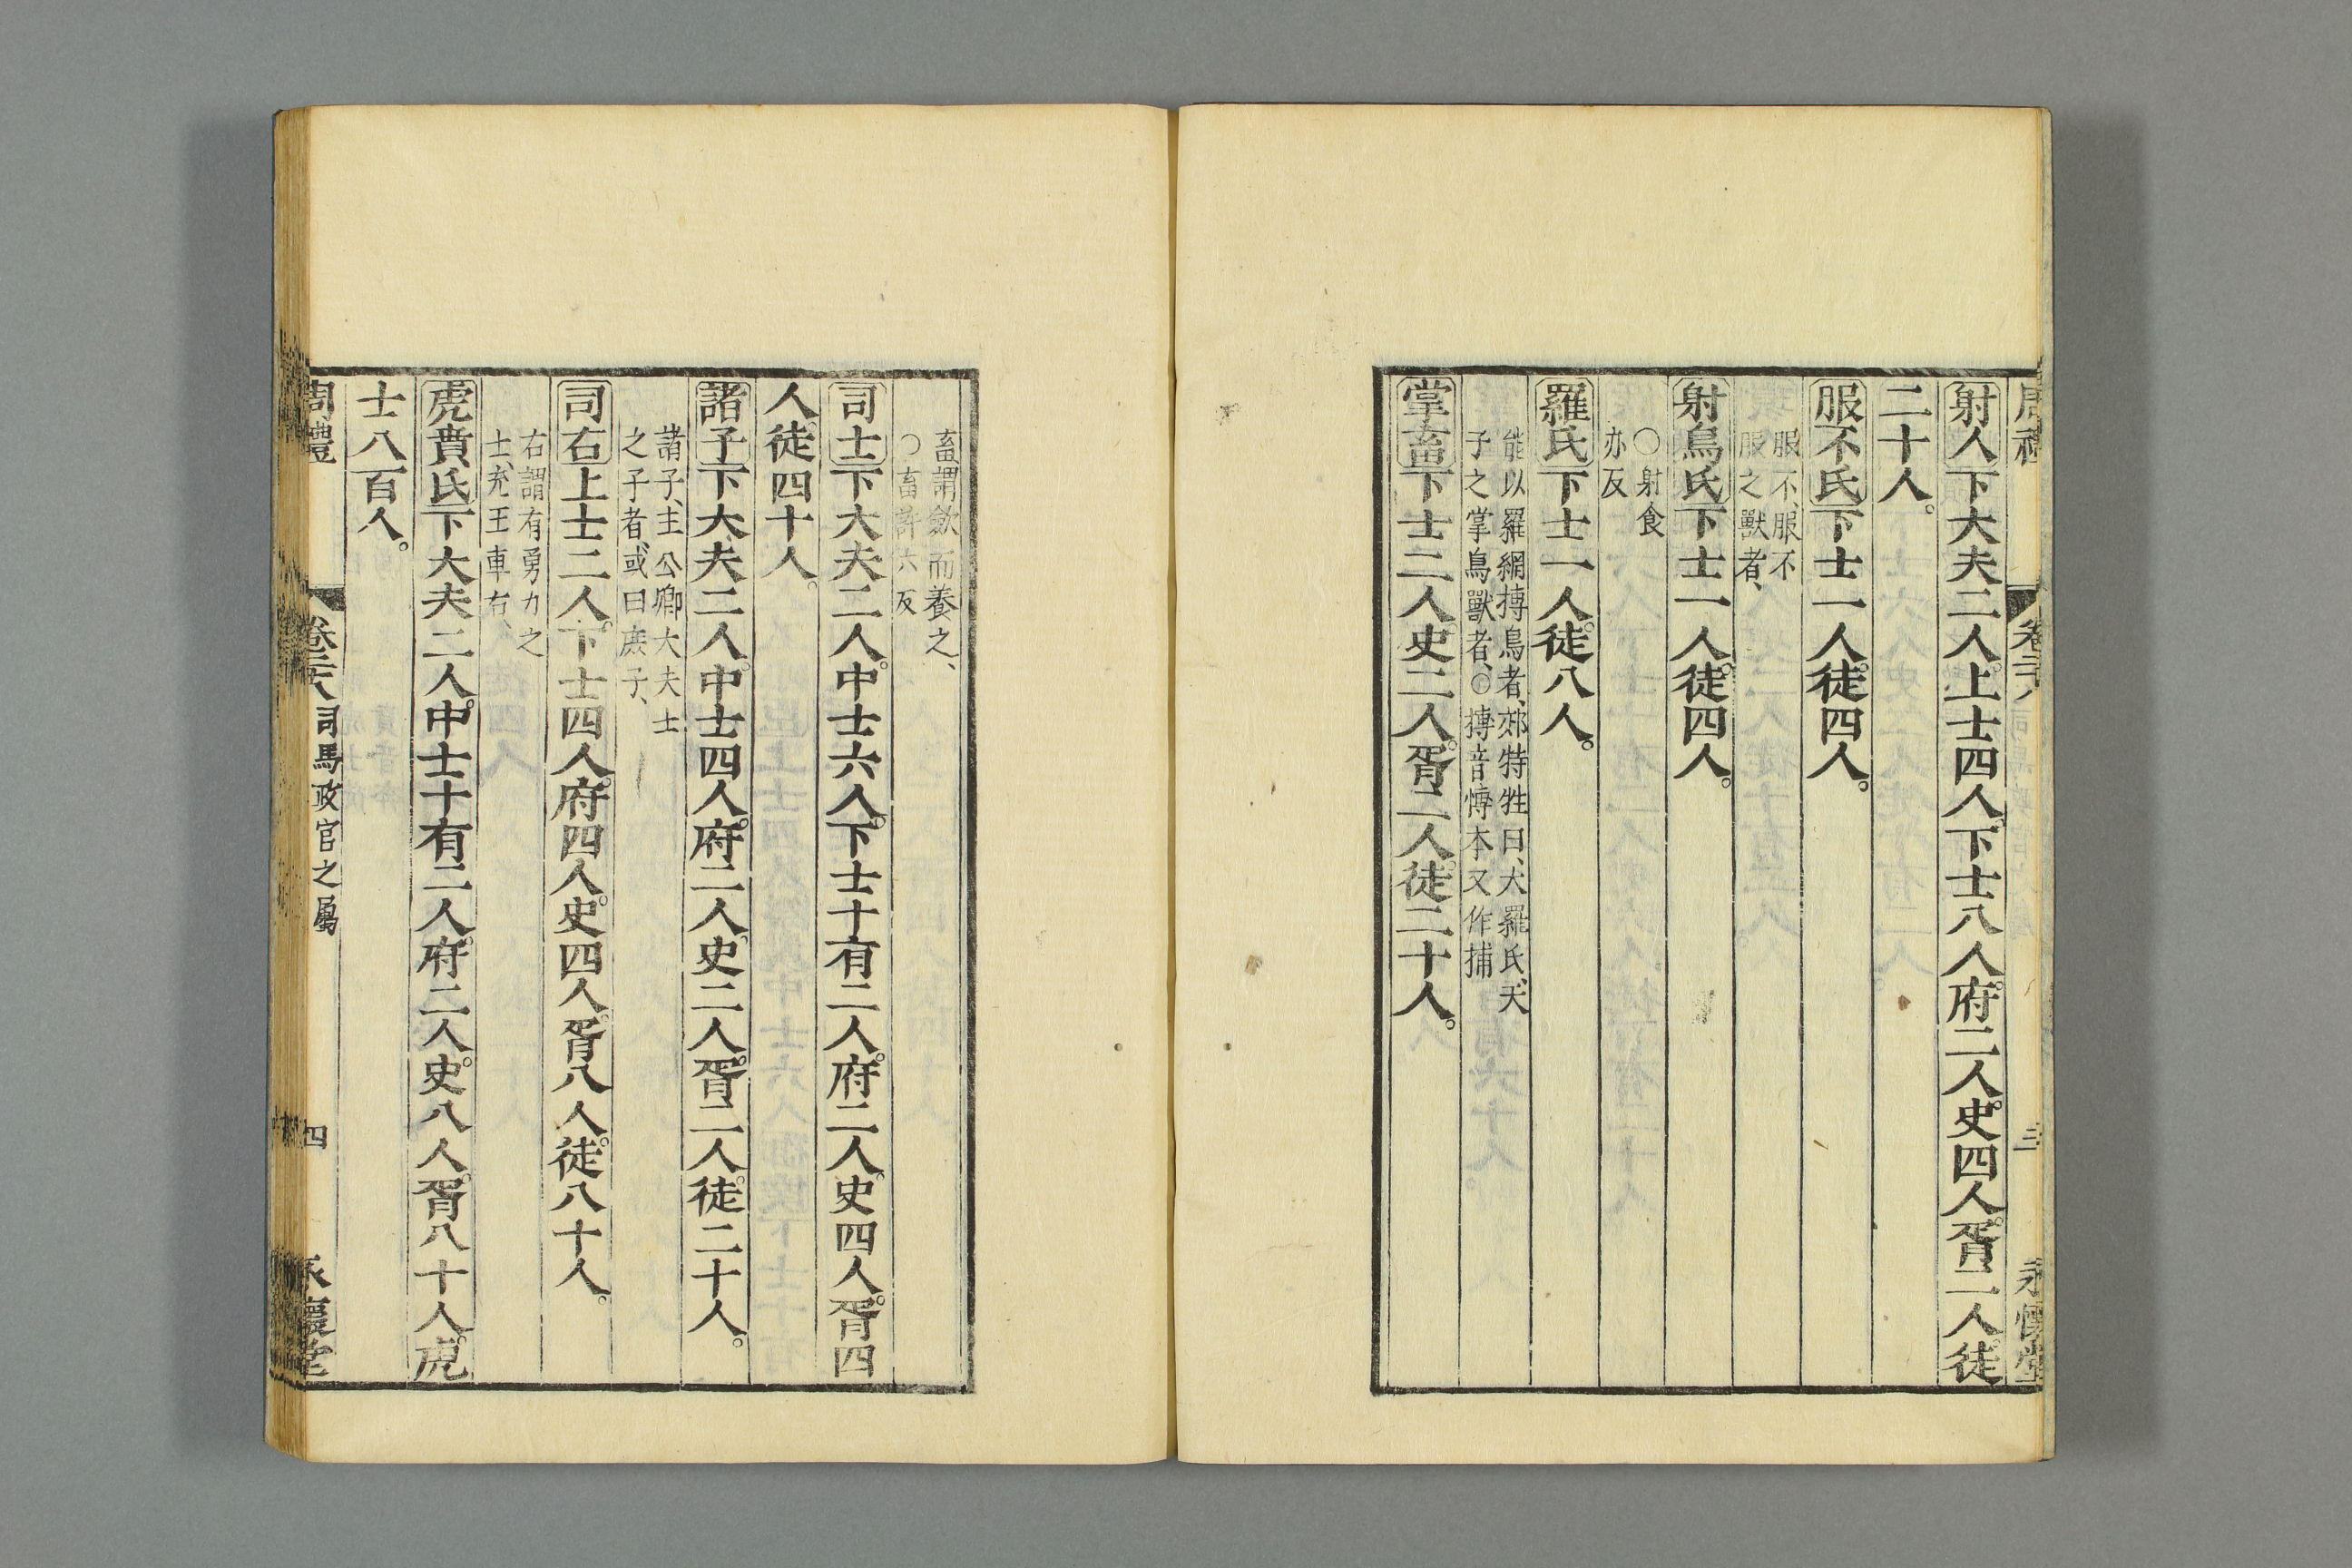 周禮 卷二十八 三 永懷堂
射人下大夫二人。上士四人。下士八人。府二人。史四人。胥二人。徒
二十人。
服不氏下士一人。徒四人。
服不、服不
服之獸者、
射鳥氏下士一人。徒四人。
〇射食
亦反
羅氏下士一人。徒八人。
能以羅網搏鳥者、郊特牲曰、大羅氏、天
子之掌鳥獸者、〇搏音慱本又作捕
掌畜下士二人。史二人。胥二人。徒二十人。
畜謂斂而養之、
〇畜許六反
司士下大夫二人。中士六人。下士十有二人。府二人。史四人。胥四
人。徒四十人。
諸子下大夫二人。中士四人。府二人。史二人。胥二人。徒二十人。
諸子、主公卿大夫士
之子者、或曰庶子、
司右上士二人。下士四人。府四人。史四人。胥八人。徒八十人。
右謂有勇力之
士、充王車右、
虎賁氏下大夫二人。中士十有二人。府二人。史八人。胥八十人。虎
士八百人。
周禮 卷二十八 司馬政官之屬 四 永懷堂